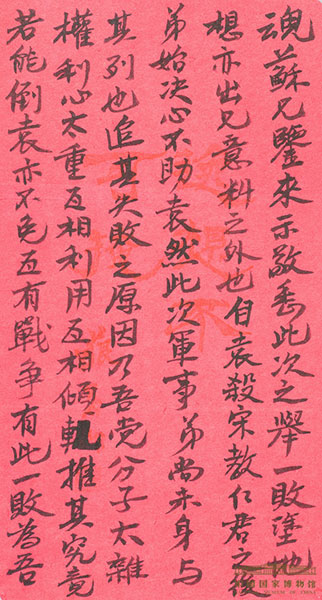 魂蘇兄鑒來示敬悉此次之舉一敗墮地
想亦出兄意料之外也自袁殺宋教仁君之後
弟始决心不助袁然此次軍事弟尚未身与
其列也追其失敗之原因乃吾党分子太雜
權利心太重互相利用互相傾軋推其究竟
若能倒袁亦不免互有戰争有此一敗為吾
中国国家博物馆